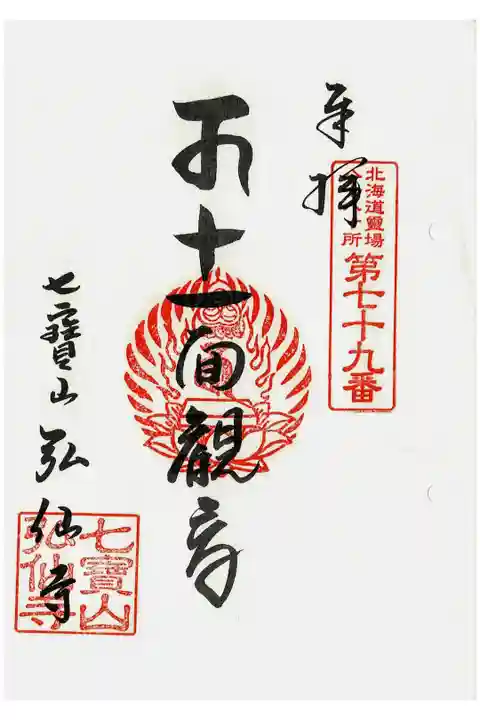 奉拝
北海道靈場
所
第七十九番
十一面觀音
七寶山 弘仙寺
七寶山
弘仙寺